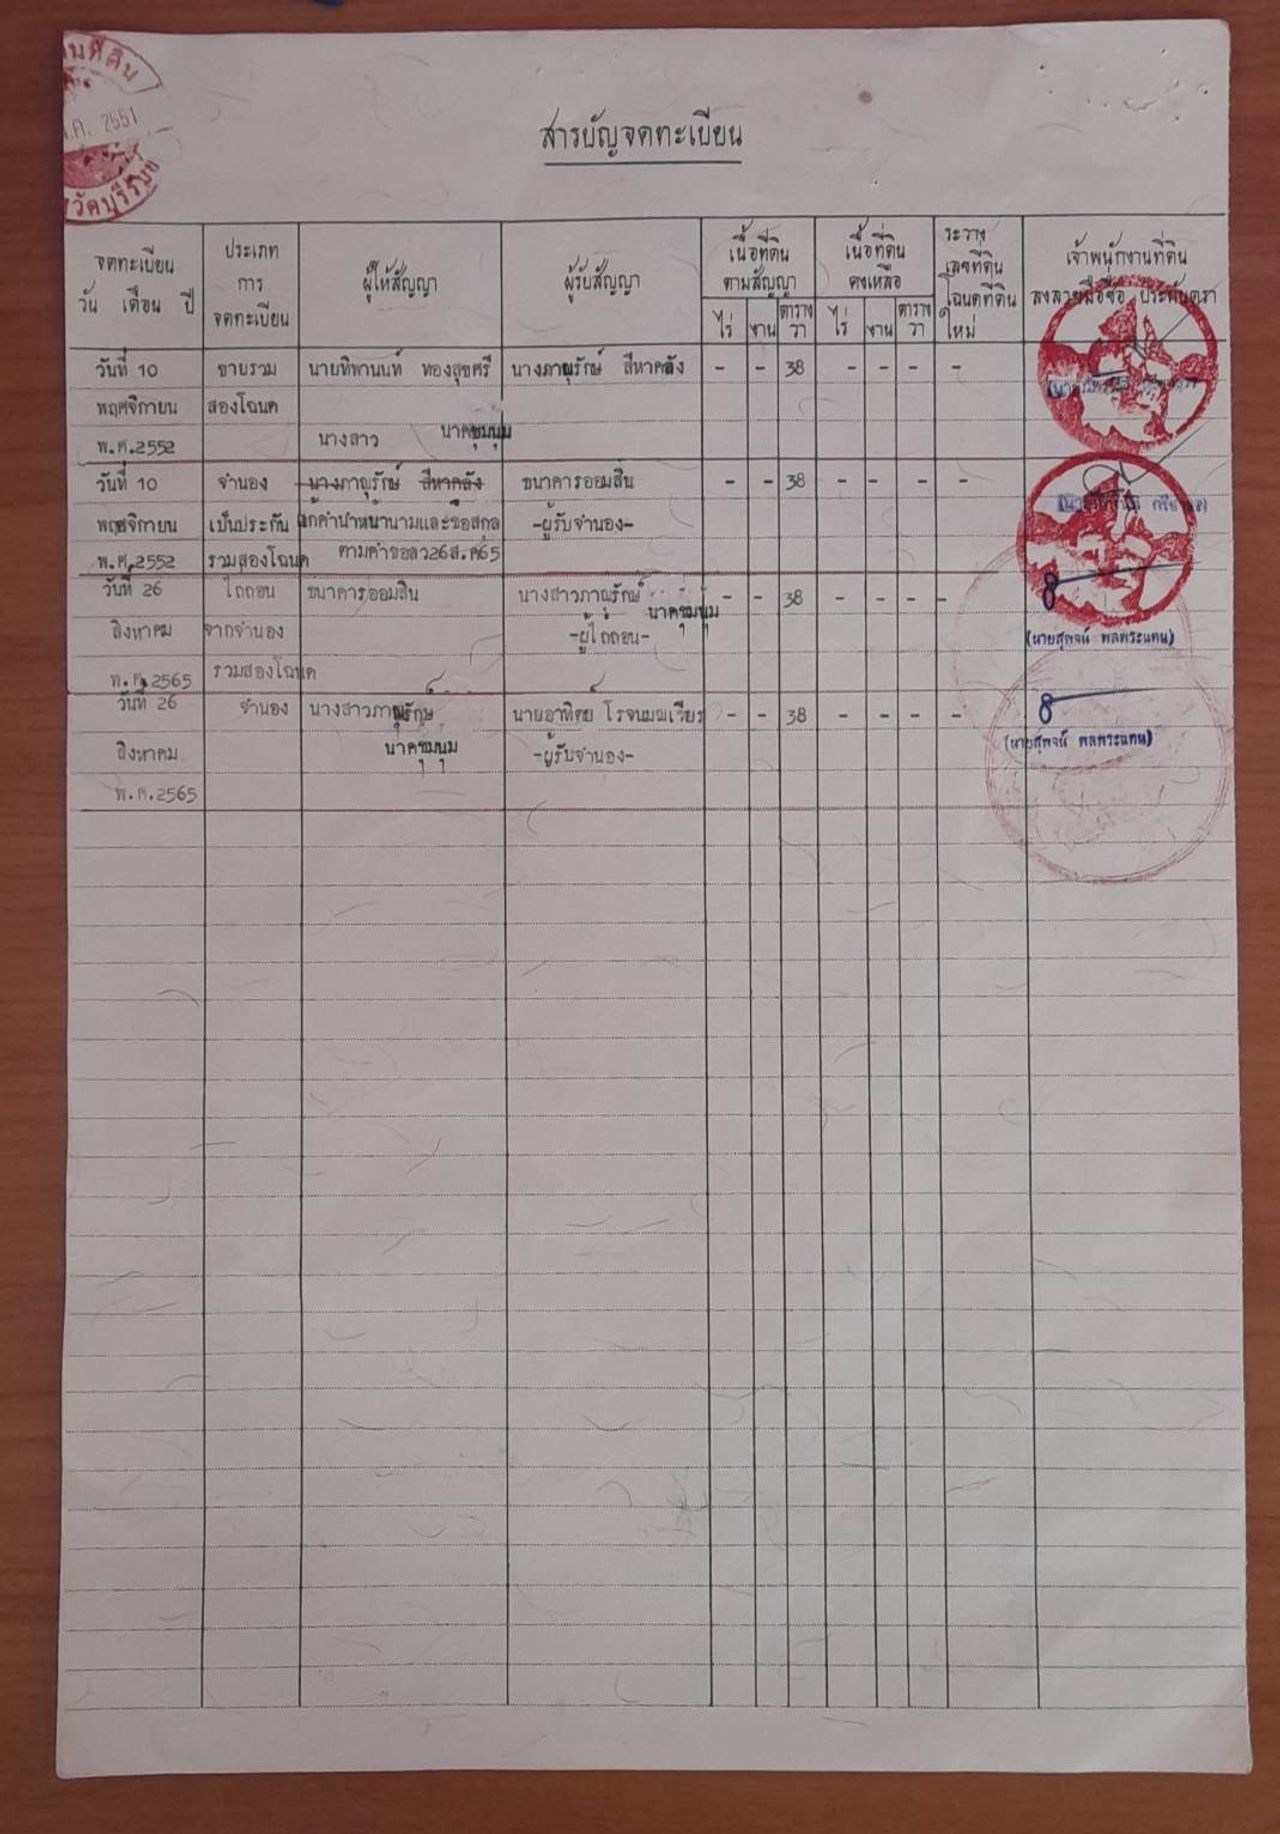 นที่ดิน
.ค. 2551
วัดบุรีรัมย์
สารบัญจดทะเบียน
จดทะเบียน
วัน เดือน ปี
ประเภท
การ
จดทะเบียน
ผู้ให้สัญญา
ผู้รับสัญญา
เนื้อที่ดิน
ตามสัญญา
ไร่ งาน ตาราง
วา
เนื้อที่ดิน
คงเหลือ
ไร่ งาน ตาราง
วา
ระวาง
เลขที่ดิน
โฉนดที่ดิน
ใหม่
เจ้าพนักงานที่ดิน
ลงลายมือชื่อ ประทับตรา
วันที่ 10 ขายรวม นายทิพานนท์ ทองสุขศรี นางภาณุรักษ์ สีหาคลัง - - 38 - - - -
พฤศจิกายน สองโฉนด
พ.ศ.2552 นางสาว นาคชุมนุม
วันที่ 10 จำนอง นางภาณุรักษ์ สีหาคลัง ธนาคารออมสิน - - 38 - - - -
พฤศจิกายน เป็นประกัน แก้คำนำหน้านามและชื่อสกุล -ผู้รับจำนอง-
พ.ศ.2552 รวมสองโฉนด ตามคำขอลว26ส.ค65
วันที่ 26 ไถ่ถอน ธนาคารออมสิน นางสาวภาณุรักษ์ นาคชุมนุม - - 38 - - - -
สิงหาคม จากจำนอง -ผู้ไถ่ถอน- (นายสุพจน์ พลพระแทน)
พ.ศ.2565 รวมสองโฉนด
วันที่ 26 จำนอง นางสาวภาณุรักษ์ นายอาทิตย์ โรจนมณเฑียร - - 38 - - - -
สิงหาคม นาคชุมนุม -ผู้รับจำนอง- (นายสุพจน์ พลพระแทน)
พ.ศ.2565